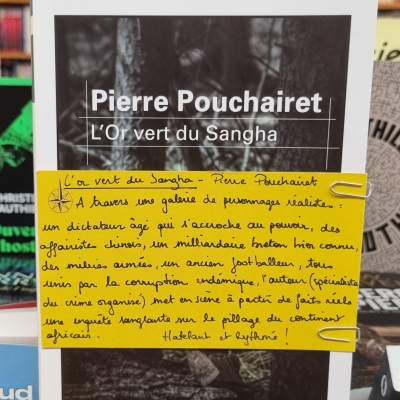 Pierre Pouchairet
L'Or vert du Sangha
L'or vert du Sangha - Pierre Pouchairet
A travers une galerie de personnages réalistes :
un dictateur âgé qui s'accroche au pouvoir, des
affairistes chinois, un milliardaire breton bien connu,
des milices armées, un ancien footballeur, tous
unis par la corruption endémique, l'auteur (spécialiste
du crime organisé) met en scène à partir de faits réels
une enquête sanglante sur le pillage du continent
africain. Haletant et rythmé !